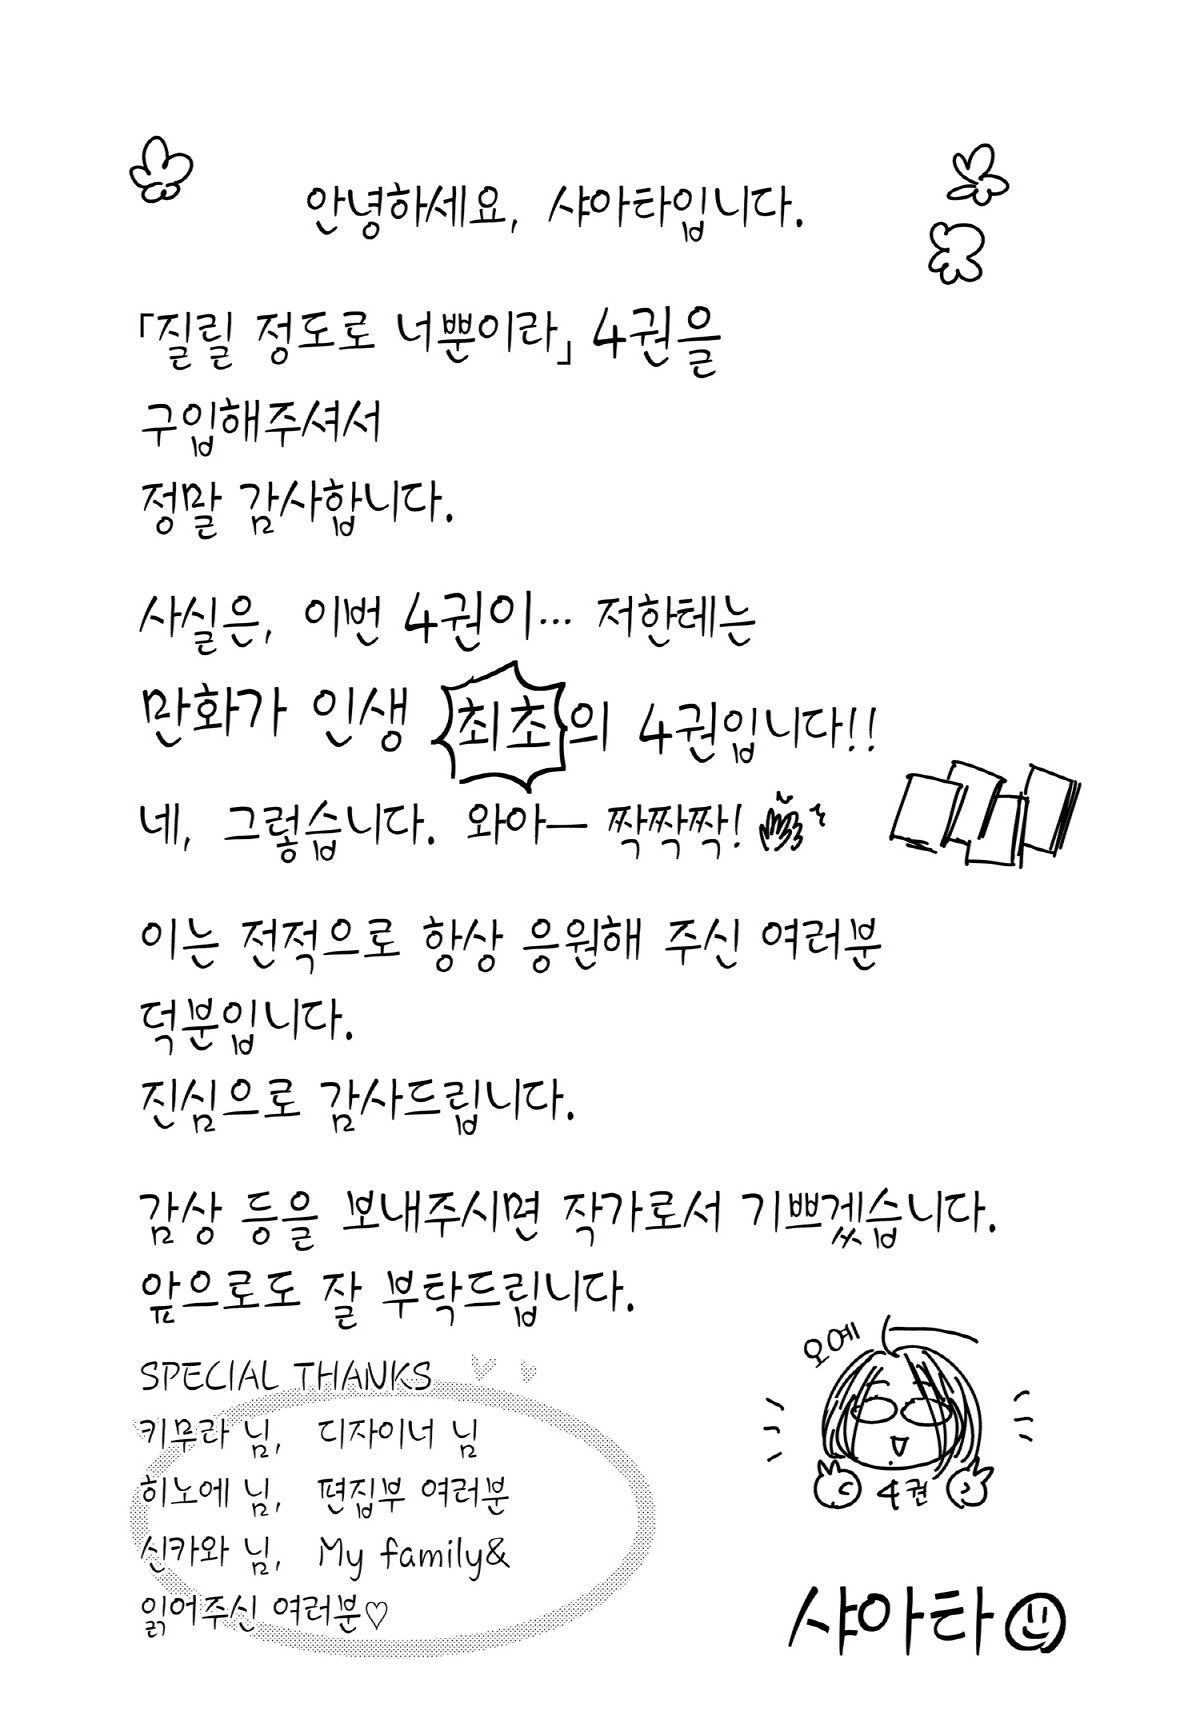 안녕하세요, 샤아타입니다.
「질릴 정도로 너뿐이라」 4권을
구입해주셔서
정말 감사합니다.
사실은, 이번 4권이… 저한테는
만화가 인생 최초의 4권입니다!!
네, 그렇습니다. 와아— 짝짝짝!
이는 전적으로 항상 응원해 주신 여러분
덕분입니다.
진심으로 감사드립니다.
감상 등을 보내주시면 작가로서 기쁘겠습니다.
앞으로도 잘 부탁드립니다.
SPECIAL THANKS
키무라 님, 디자이너 님
히노에 님, 편집부 여러분
신카와 님, My family&
읽어주신 여러분♡
오예
4권
샤아타